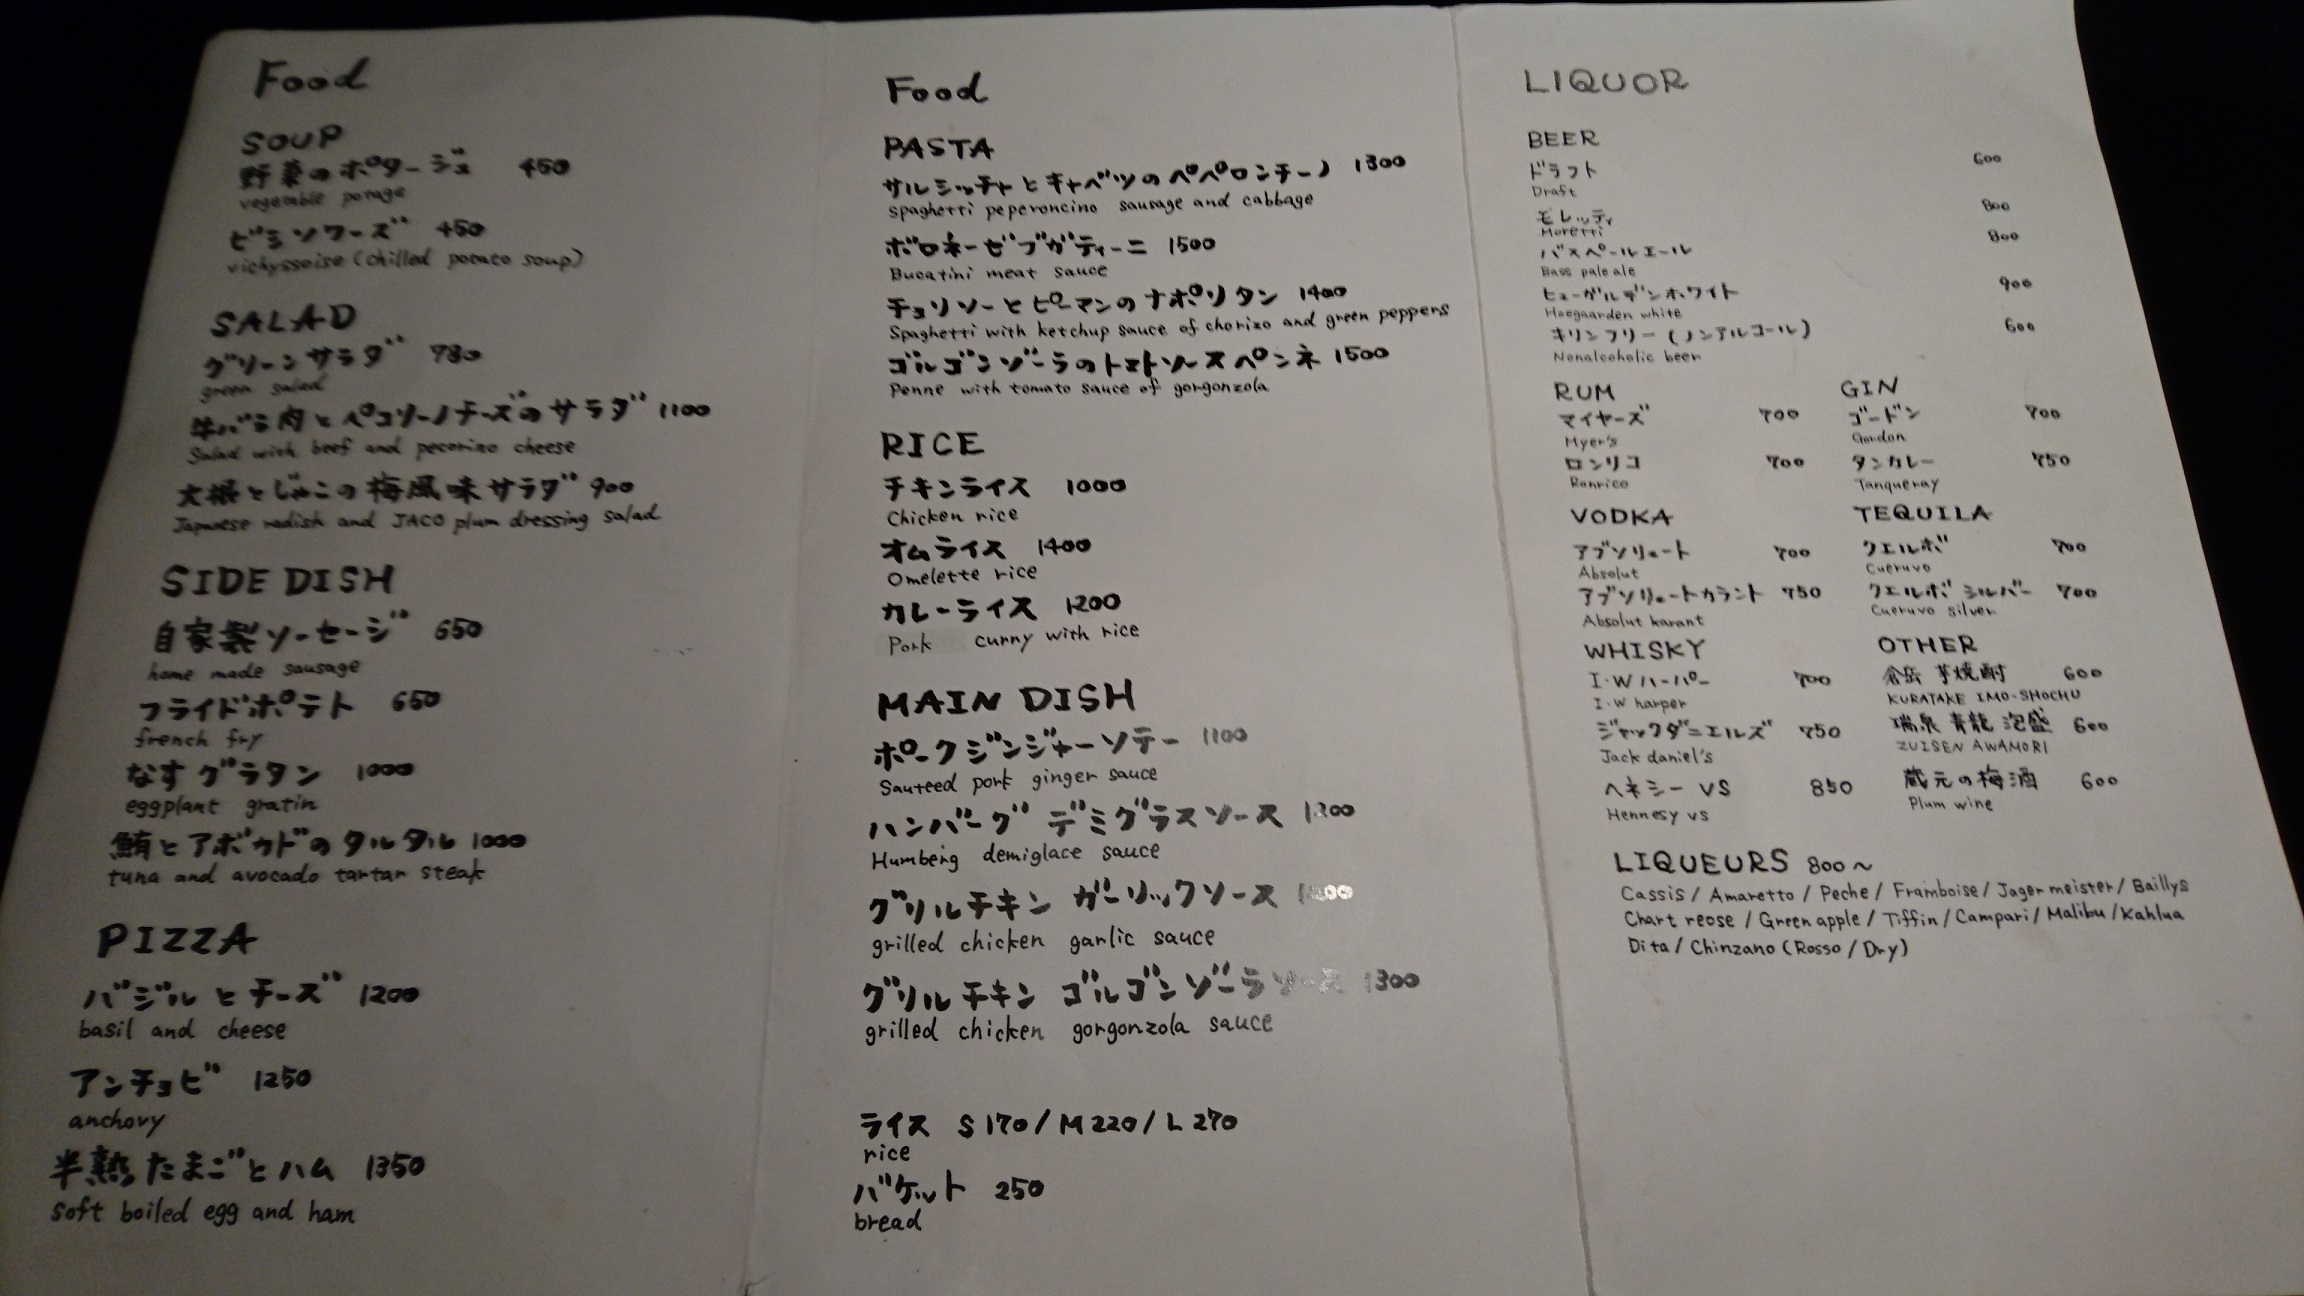 Food
SOUP
野菜のポタージュ 450
vegetable potage
ビシソワーズ 450
vichyssoise (chilled potato soup)
SALAD
グリーンサラダ 780
green salad
牛バラ肉とペコリーノチーズのサラダ 1100
Salad with beef and pecorino cheese
大根とじゃこの梅風味サラダ 900
Japanese radish and JACO plum dressing salad
SIDE DISH
自家製ソーセージ 650
home made sausage
フライドポテト 650
french fry
なすグラタン 1000
eggplant gratin
鮪とアボカドのタルタル 1000
tuna and avocado tartar steak
PIZZA
バジルとチーズ 1200
basil and cheese
アンチョビ 1250
anchovy
半熟たまごとハム 1350
soft boiled egg and ham
Food
PASTA
サルシッチャとキャベツのペペロンチーノ 1300
Spaghetti peperoncino sausage and cabbage
ボロネーゼブガティーニ 1500
Bucatini meat sauce
チョリソーとピーマンのナポリタン 1400
Spaghetti with ketchup sauce of chorizo and green peppers
ゴルゴンゾーラのトマトソースペンネ 1500
Penne with tomato sauce of gorgonzola
RICE
チキンライス 1000
Chicken rice
オムライス 1400
Omelette rice
カレーライス 1200
Pork curry with rice
MAIN DISH
ポークジンジャーソテー 1100
Sauteed pork ginger sauce
ハンバーグ デミグラスソース 1200
Humberg demiglace sauce
グリルチキン ガーリックソース
grilled chicken garlic sauce
グリルチキン ゴルゴンゾーラソース 1300
grilled chicken gorgonzola sauce
ライス S 170 / M 220 / L 270
rice
バケット 250
bread
LIQUOR
BEER
ドラフト 600
Draft
モレッティ 800
Moretti
バスペールエール 800
Bass pale ale
ヒューガルデンホワイト 900
Hoegaarden white
キリンフリー (ノンアルコール) 600
Nonalcoholic beer
RUM
マイヤーズ 700
Myer's
ロンリコ 700
Ronrico
GIN
ゴードン 700
Gordon
タンカレー 750
Tanqueray
VODKA
アブソリュート 700
Absolut
アブソリュートカラント 750
Absolut karant
TEQUILA
クエルボ 700
Cueruvo
クエルボ シルバー 700
Cueruvo silver
WHISKY
I・Wハーパー 700
I・W harper
ジャックダニエルズ 750
Jack daniel's
ヘネシー VS 850
Hennesy vs
OTHER
倉岳 芋焼酎 600
KURATAKE IMO-SHOCHU
瑞泉 青龍 泡盛 600
ZUISEN AWAMORI
蔵元の梅酒 600
Plum wine
LIQUEURS 800~
Cassis / Amaretto / Peche / Framboise / Jager meister / Baillys
Chart reose / Green apple / Tiffin / Campari / Malibu / Kahlua
Dita / Chinzano (Rosso / Dry)